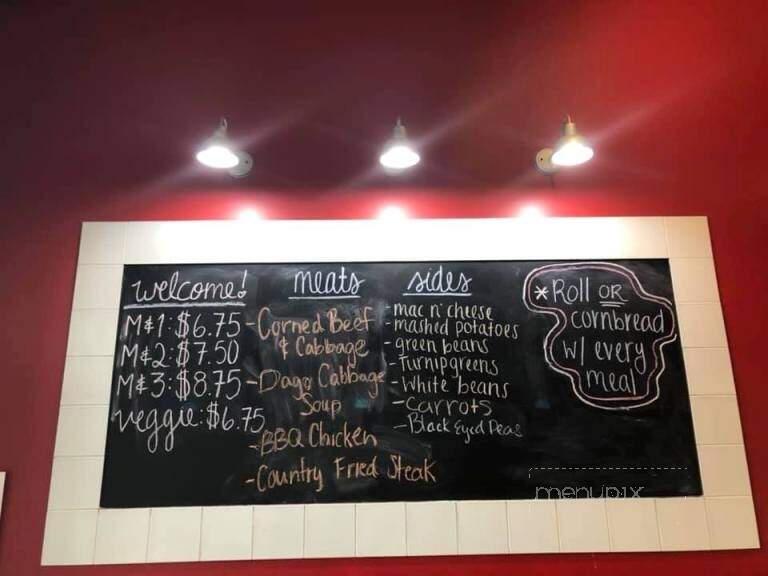 welcome!
M&1: $6.75
M&2: $7.50
M&3: $8.75
veggie: $6.75
meats
- Corned Beef
& Cabbage
- Dago Cabbage
Soup
- BBQ Chicken
- Country Fried Steak
sides
- mac n' cheese
- mashed potatoes
- green beans
- Turnip greens
- White beans
- Carrots
- Black Eyed Peas
* Roll OR
cornbread
w/ every
meal
menupix